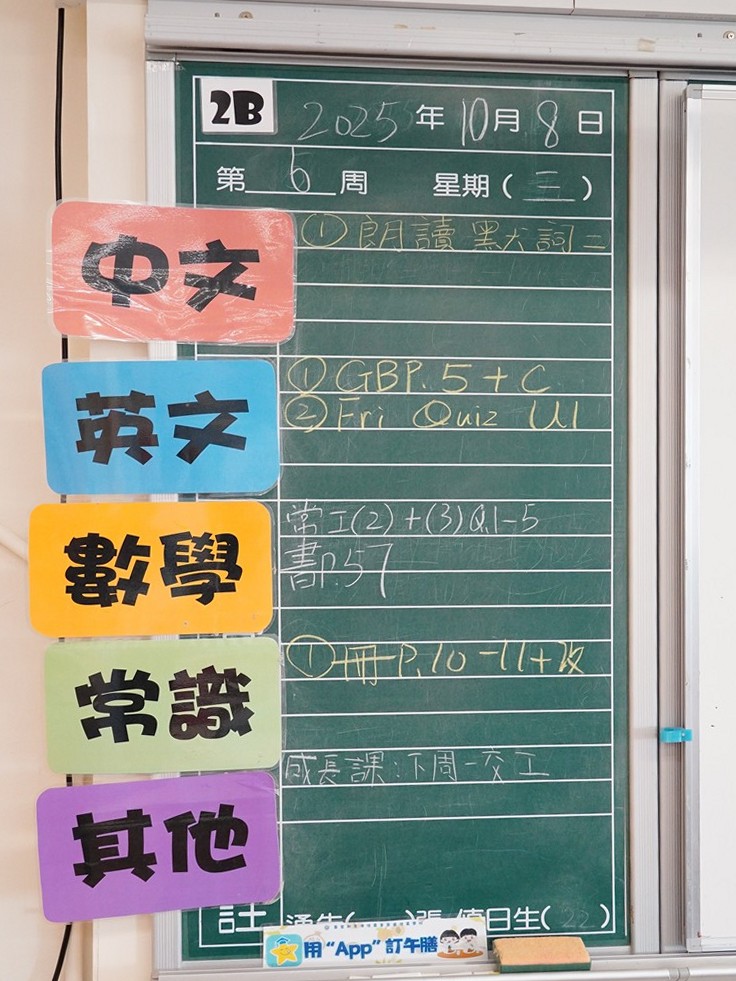 2B 2025年10月8日
第 6 周 星期(三)
中文
① 朗讀 默詞二
英文
① GBP.5+C
② Fri Quiz U1
數學
常工(2)+(3)Q.1-5
書P.57
常識
① 冊P.10-11+改
其他
成長課:下周一交工
註 通告( )張 值日生(22)
用“App”訂午膳